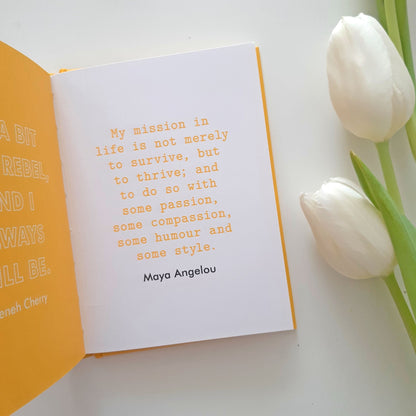 A BIT
REBEL,
ND I
WAYS
ILL BE.
eneh Cherry
My mission in
life is not merely
to survive, but
to thrive; and
to do so with
some passion,
some compassion,
some humour and
some style.
Maya Angelou